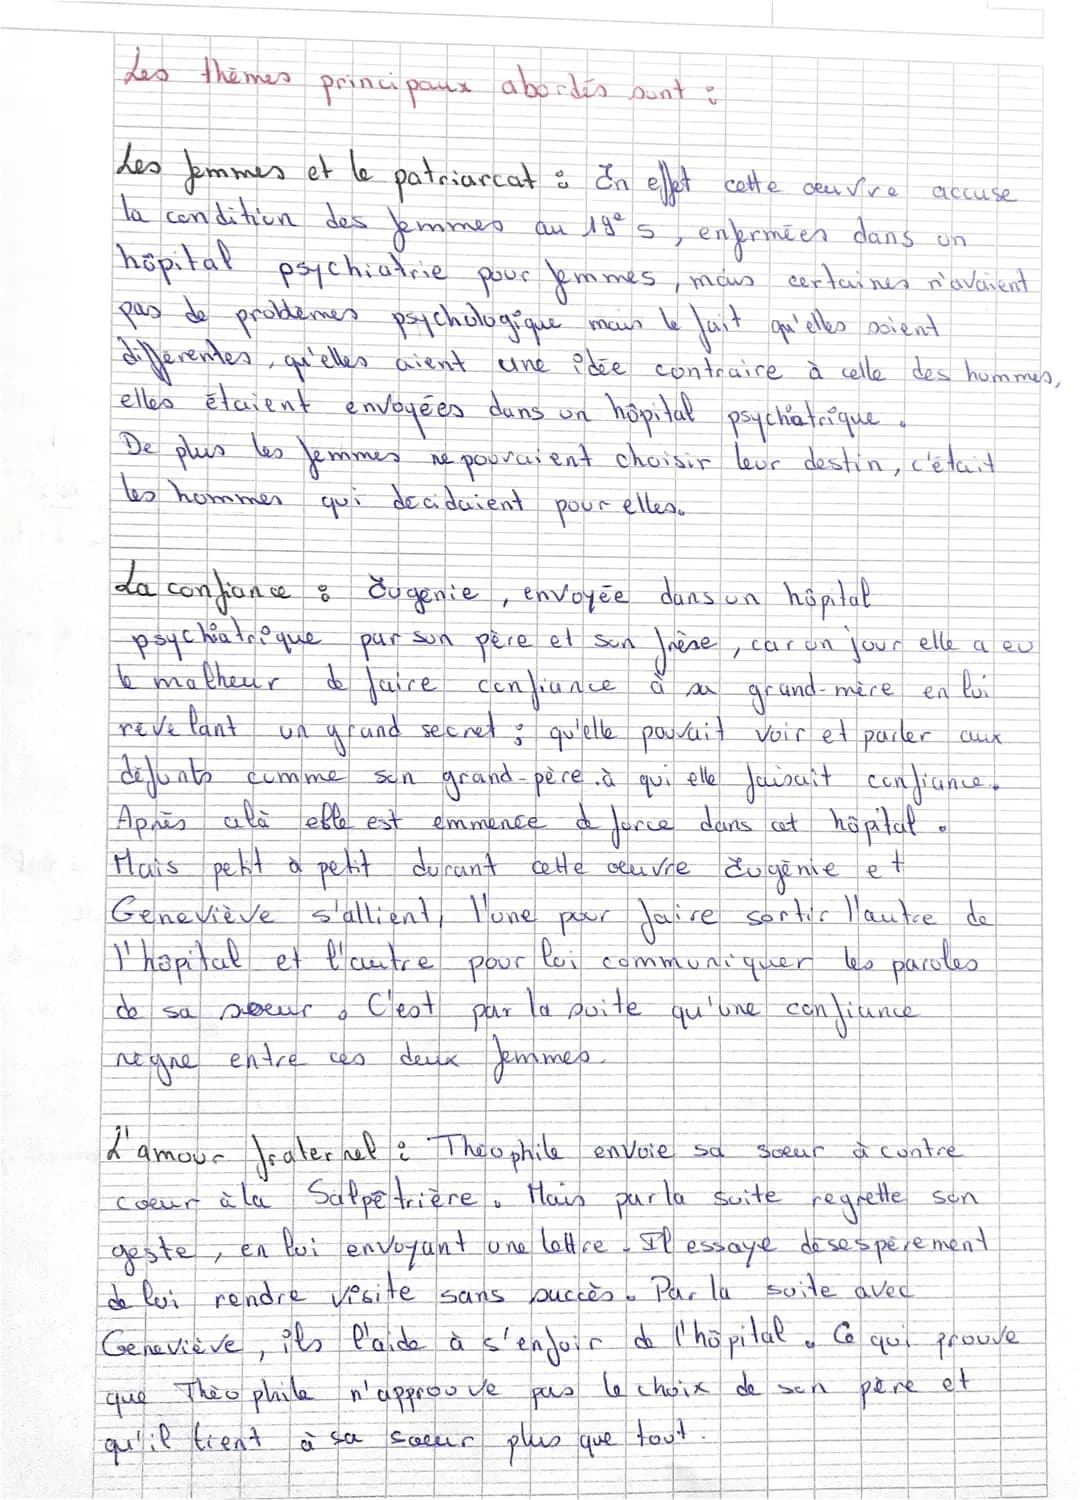 Les thèmes principaux abordés sont :
Les femmes et le patriarcat : En effet cette oeuvre accuse
la condition des femmes au 19e s, enfermées dans un
hôpital psychiatrie pour femmes, mais certaines n'avaient
pas de problèmes psychologique mais le fait qu'elles soient
différentes, qu'elles aient une idée contraire à celle des hommes,
elles étaient envoyées dans un hôpital psychiatrique.
De plus les femmes ne pouvaient choisir leur destin, c'était
les hommes qui decidaient pour elles.
La confiance : Eugénie, envoyée dans un hôpital
psychiatrique par son père et son frère, car un jour elle a eu
le malheur de faire confiance à sa grand-mère en lui
révélant un grand secret ; qu'elle pouvait voir et parler aux
défunts comme son grand-père à qui elle faisait confiance.
Après celà elle est emmenée de force dans cet hôpital.
Mais petit à petit durant cette oeuvre Eugénie et
Geneviève s'allient, l'une pour faire sortir l'autre de
l'hôpital et l'autre pour lui communiquer les paroles
de sa soeur. C'est par la suite qu'une confiance
règne entre ces deux femmes.
L'amour fraternel : Théophile envoie sa soeur à contre
coeur à la Salpêtrière. Mais par la suite regrette son
geste, en lui envoyant une lettre. Il essaye désespérement
de lui rendre visite sans succès. Par la suite avec
Geneviève, ils l'aide à s'enfuir de l'hôpital. Ce qui prouve
que Théophile n'approuve pas le choix de son père et
qu'il tient à sa soeur plus que tout.